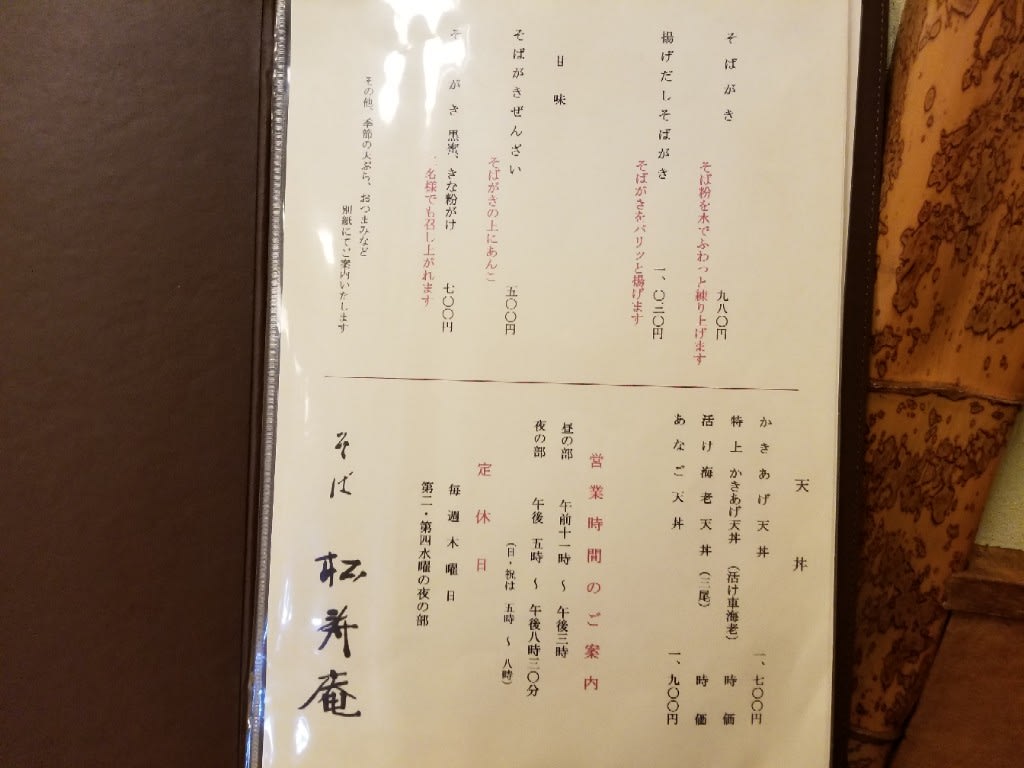 そばがき 九八〇円
そば粉を水でふわっと練り上げます
揚げだしそばがき 一、〇三〇円
そばがきをパリッと揚げます
甘味
そばがきぜんざい 五〇〇円
そばがきの上にあんこ
そ がき 黒蜜、きな粉がけ 七〇〇円
名様でも召し上がれます
その他、季節の天ぷら、おつまみなど
別紙にてご案内いたします
天丼
かきあげ天丼 一、七〇〇円
特上 かきあげ天丼 (活け車海老) 時価
活け海老天丼 (三尾) 時価
あなご天丼 一、九〇〇円
営業時間のご案内
昼の部 午前十一時 ～ 午後三時
夜の部 午後 五時 ～ 午後八時三〇分
(日・祝は 五時 ～ 八時)
定休日
毎週木曜日
第二・第四水曜の夜の部
そば 松寿庵